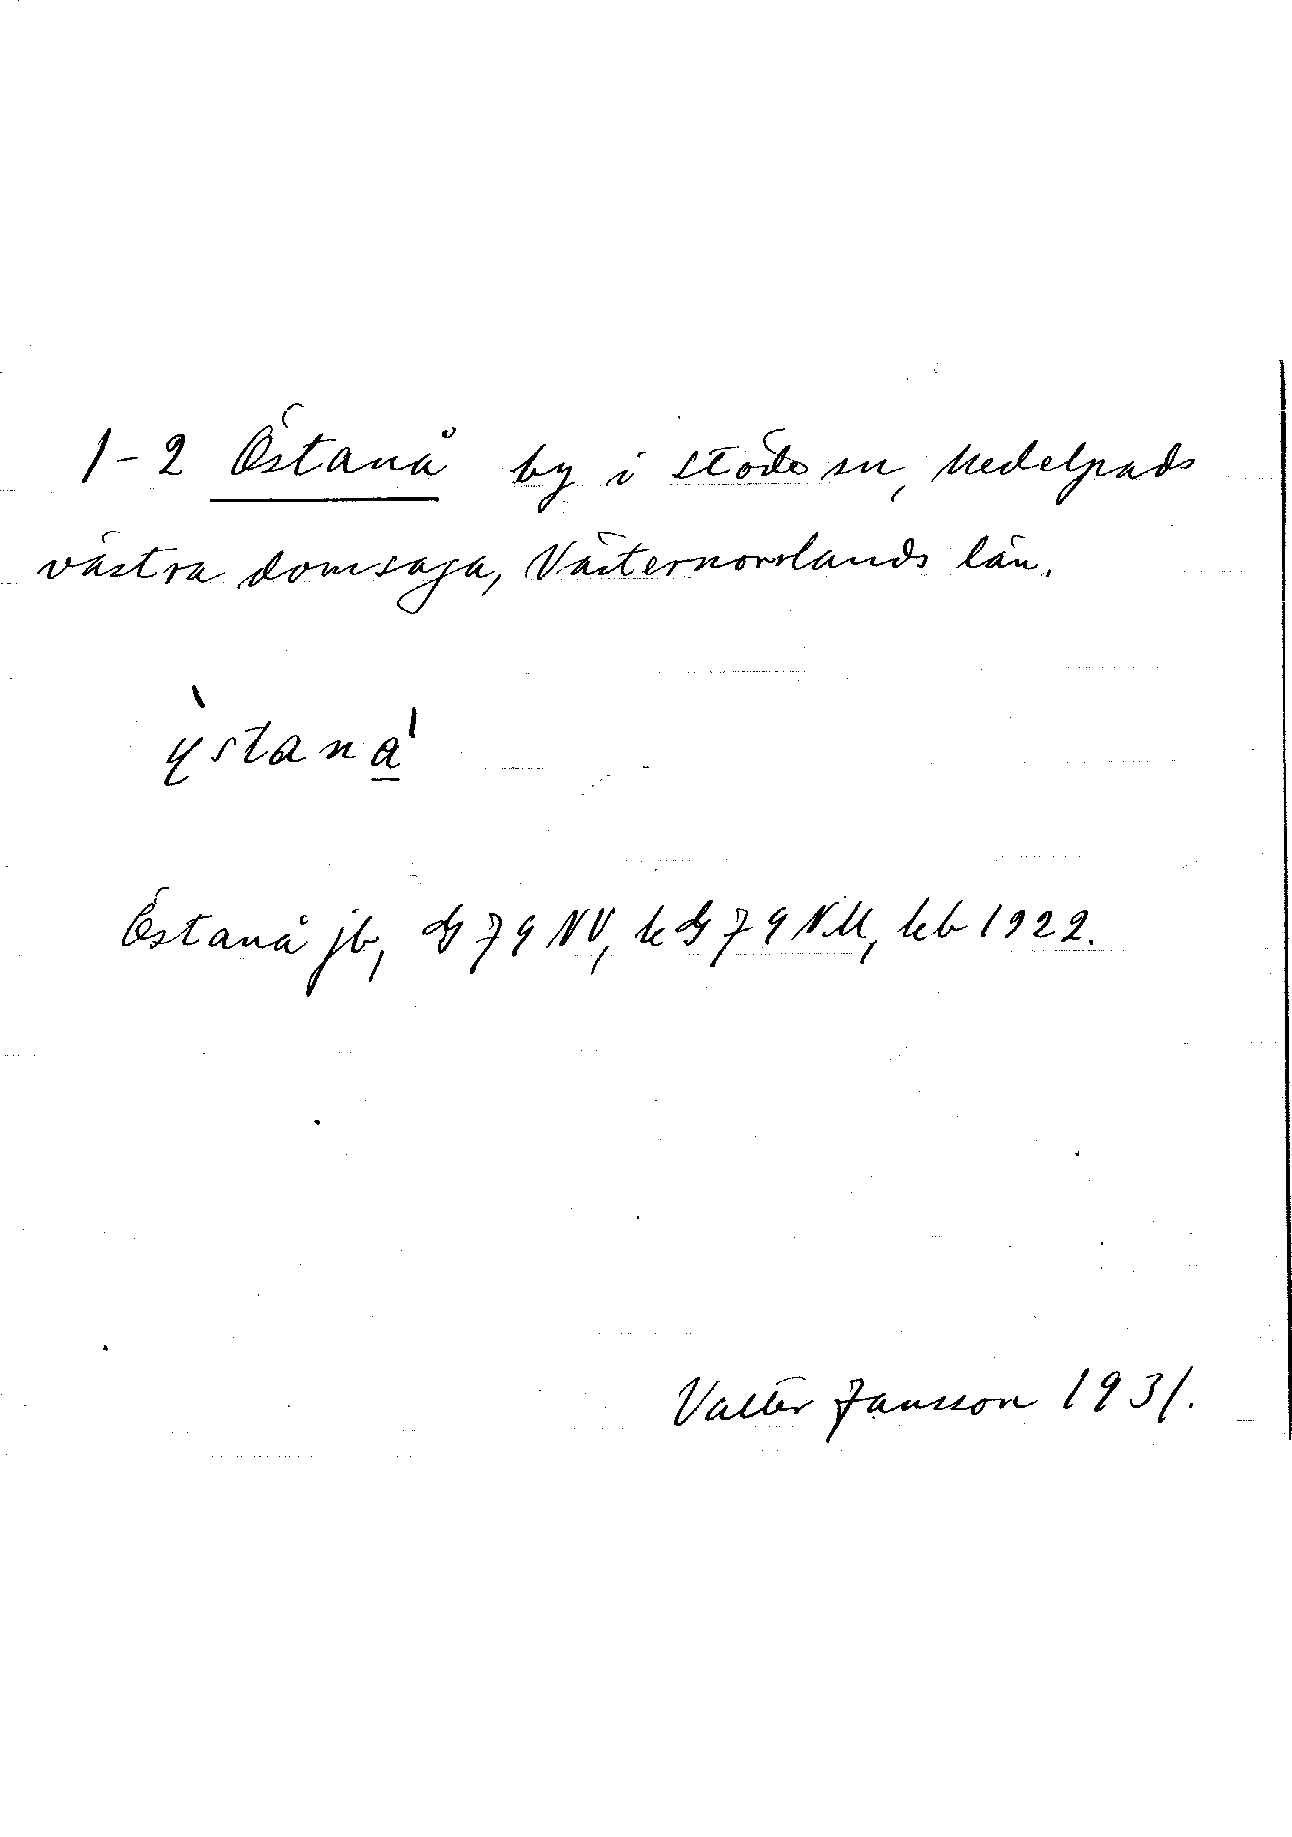 1-2 Östanå by i Stöde sn, Medelpads
västra domsaga, Västernorrlands län.
Östanå jb, 79 NV, k 79 NM, kb 1922.
Valter Jansson 1931.